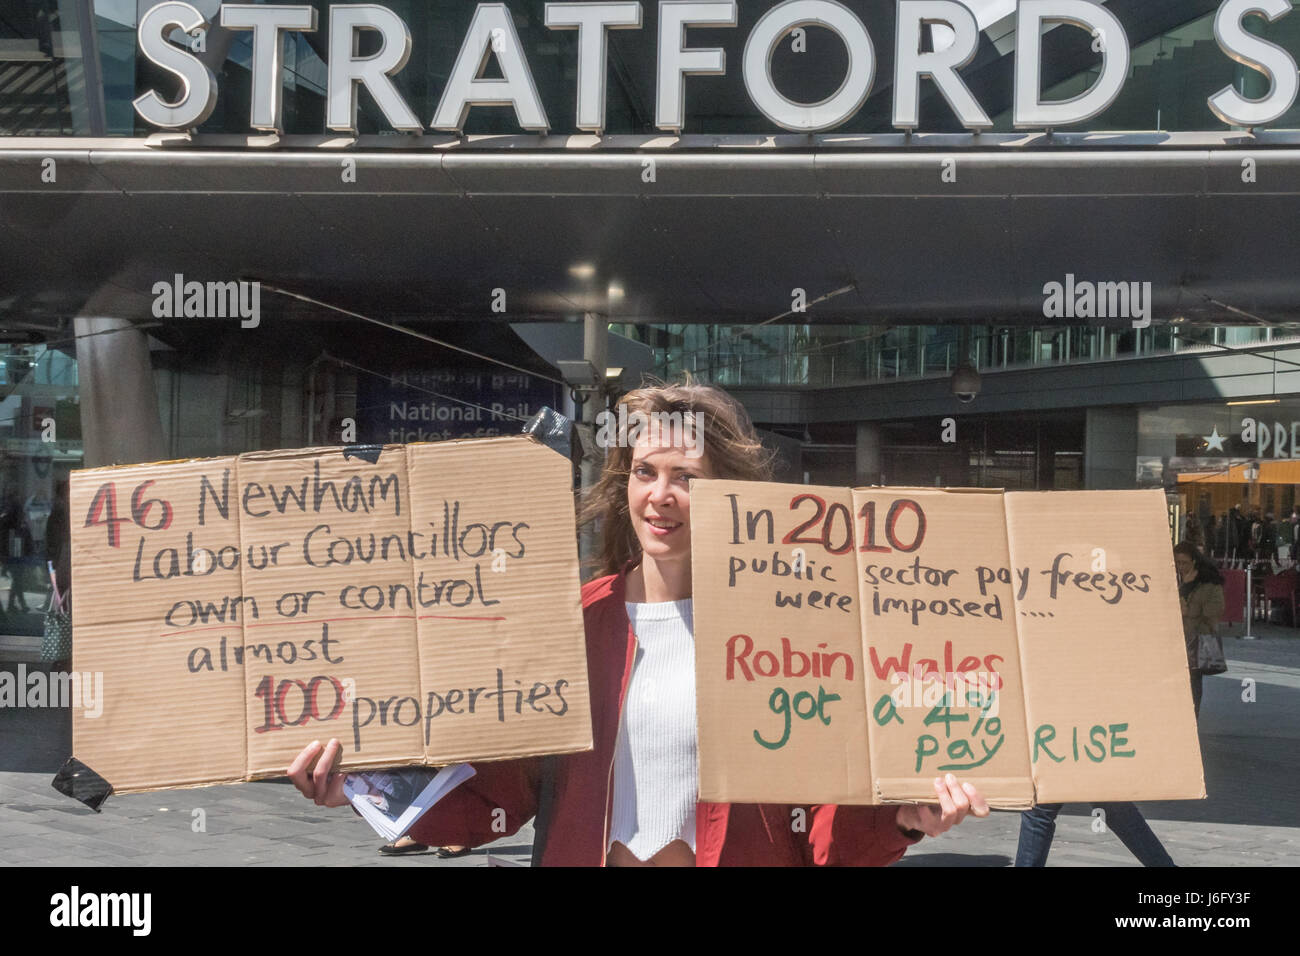 STRATFORD S
National Rail
National Rail
ticket office
PRE
46 Newham
Labour Councillors
own or control
almost
100 properties
In 2010
public sector pay freezes
were imposed ....
Robin Wales
got a 4%
pay RISE
alamy
alamy
alamy
alamy
a
a
a
a
alamy
Image ID: J6FY3F
www.alamy.com